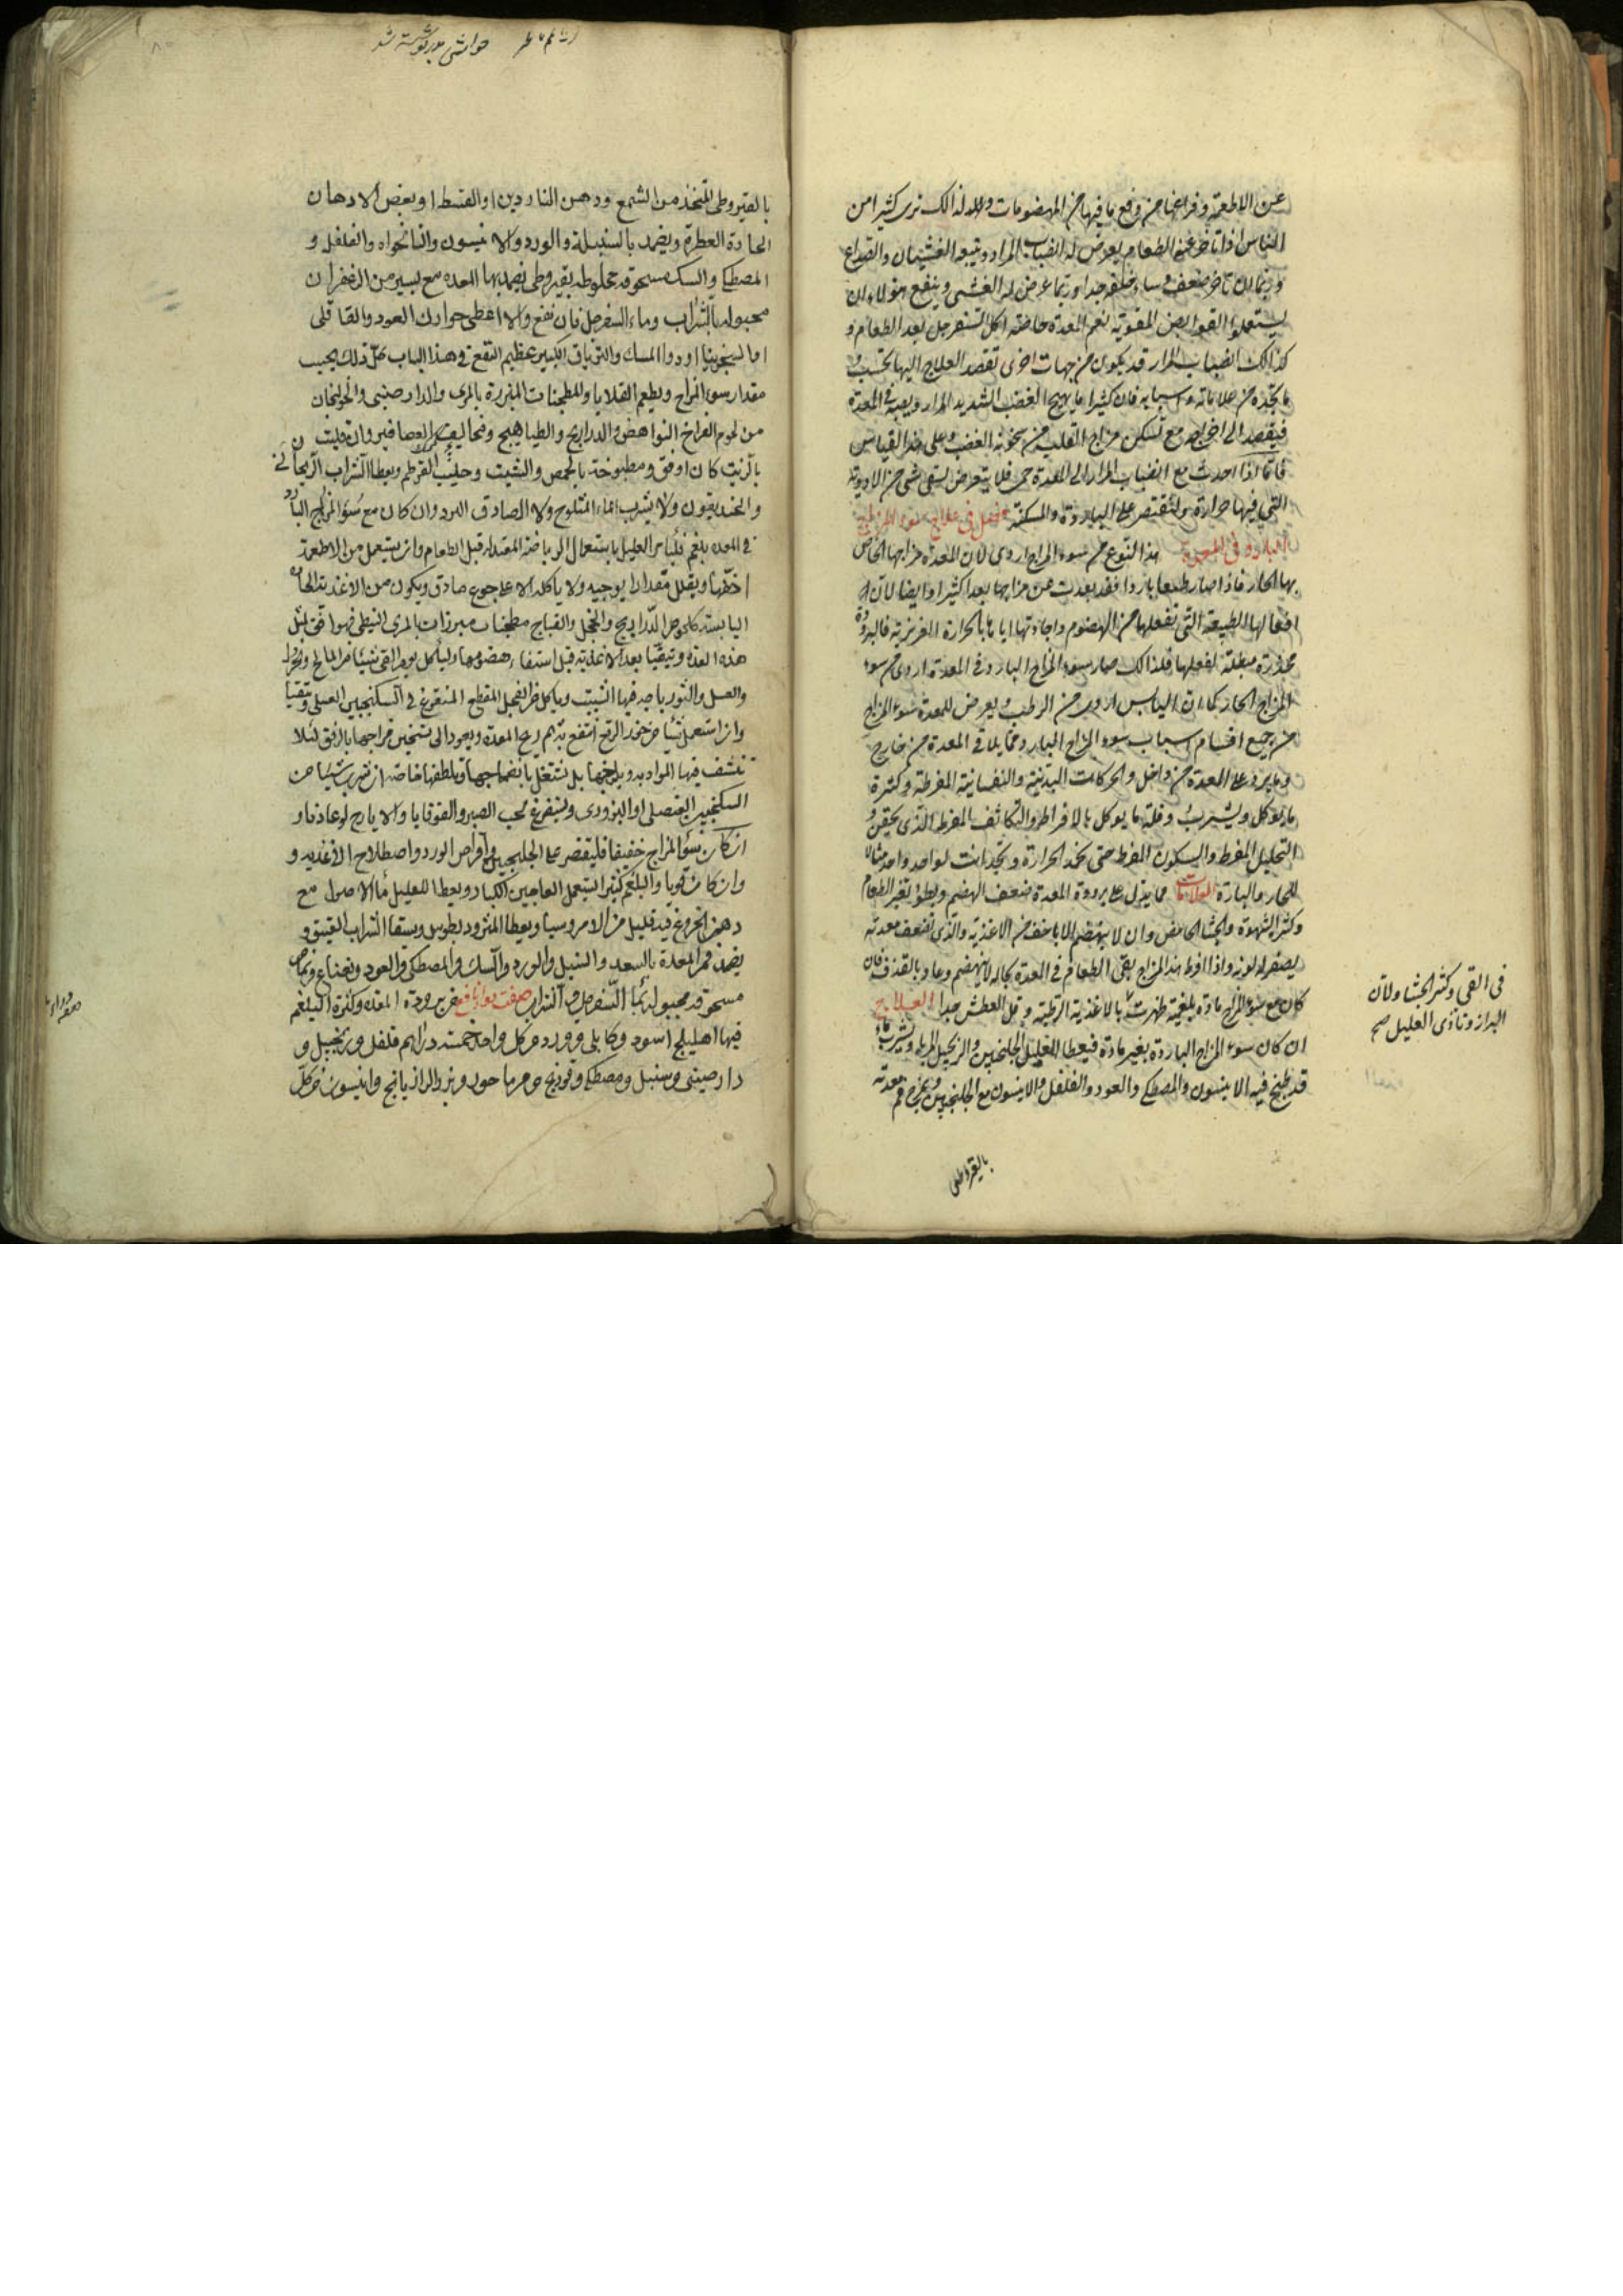 عن الاطعمة وفراغها من وقع ما فيها من المهضومات ولذلك نرى كثيرا من
الناس اذا تأخر عنهم الطعام يعرض له انصباب المرار ويتبعه الغثيان والصداع
وربما ان تأخر ضعف وساء خلقه جدا وربما عرض له الغشى وينفع هولاء ان
يستعملوا القوابض المقوية لفم المعدة خاصة اكل السفرجل بعد الطعام و
كذالك انصباب المرار قد يكون من جهات اخرى تقصد العلاج اليها بحسب
ما تجده من علاماته واسبابه فان كثيرا ما يهيج الغضب الشديد المرار ويصبه فى المعدة
فيقصد الى اخراجه مع تسكين مزاج القلب من سخونة الغضب وعلى هذا القياس
فاما اذا حدث مع انصباب المرار الى المعدة حمى فلا يتعرض لسقى شى من الادوية
التى فيها حرارة وليقتصر على الباردة والمسكنة فصل فى علاج سوء المزاج
البارد فى المعدة هذا النوع من سوء المزاج اردى لان المعدة مزاجها الخاص
بها الحار فاذا صار طبعها باردا فقد بعدت عن مزاجها بعدا كثيرا وايضا لان
افعالها الطبيعة التى تفعلها من الهضوم واجادتها اياها بالحرارة الغريزية فالبرودة
مخدرة مبطلة لفعلها فلذالك صار سوء المزاج البارد فى المعدة اردى من سوء
المزاج الحار كما ان اليابس اردى من الرطب ويعرض للمعدة سوء المزاج
من جميع اقسام اسباب سوء المزاج البارد مما يلاقى المعدة من خارج
وما يرد على المعدة من داخل والحركات البدنية والنفسانية المفرطة وكثرة
ما يوكل ويشرب وقلة ما يوكل بالافراط والتكاثف المفرط الذى يحقن
التحليل المفرط والسكون المفرط حتى تخمد الحرارة وتجد انت لواحد واحد مثالا
للحار والبارد العلامات مما يدل على برودة المعدة ضعف الهضم وبطؤ تغير الطعام
وكثرة الشهوة والجشا الحامض وان لا ينهضم الا ما خف من الاغذية والذى تضعف معدته
يصفر له لونه واذا افرط هذا المزاج بقى الطعام فى المعدة بحاله لا ينهضم وعاد بالقذف فان
كان مع سوء المزاج مادة بلغمية ظهرت بالاغذية الرطبة وقل العطش جدا العلاج
ان كان سوء المزاج الباردة بغير مادة فيعطا العليل الجلنجبين والزنجبيل المربا ويشرب ماء
قد طبخ فيه الانيسون والمصطكى والعود والفلفل والانيسون مع الجلنجبين ويمرخ فم معدته
بالقيروطى
فى القى وكثر الجشا ولان
البراز وتاذى العليل صح
حواشى بدر نوشته شد
بالقيروطى المتخذ من الشمع ودهن الناردين او القسط او بعض الادهان
الحادة العطرة ويضمد بالسنبلة والورد والانيسون والنانخواه والفلفل و
المصطكى والسك مسحوقة مخلوطة بقيروطى يضمد بها المعده مع يسير من الزعفران
مجبوله بالشراب وماء السفرجل فان نفع والا اعطى جوارك العود والقاقلى
او السجزينا او دوا المسك والترياق الكبير عظيم النفع فى هذا الباب كل ذلك بحسب
مقدار سوء المزاج ويطعم القلايا والمطجنات المبزرة بالمرى والدارصينى والخولنجان
من لحوم الفراخ النواهض والدراريج والطياهيج ونحاليف العصافير وان قليت
بالزيت كان اوفق ومطبوخة بالحمص والشبت وحليب القرطم ويعطا الشراب الريحانى
والخنديقون ولا يشرب الماء المثلوج ولا الصادق البرد وان كان مع سوء المزاج البارد
فى المعده بلغم فليامر العليل باستعمال الرياضة المعتدلة قبل الطعام وان يستعمل من الاطعمة
اخفها ويقلل مقدار ما يوجبه ولا ياكله الا على جوع صادق ويكون من الاغذية الحارة
اليابسة كلحوم الدراريج والحجل والقباج مطجنات مبزرات بالمرى النبطى فهو اوفق لمثل
هذه المعدة وتيقيا بعد الاغذية قبل استفاء هضومها وليأكل يوم القى شيئا من المالح والخردل
والعسل والثورباجه فيها الشبت وياكل من الفجل المقطع المنقوع فى السكنجبين العسلى وتقيا
وان استعمل شيئا من خردل انتفع به ثم ريح المعدة ويعود الى تسخين مزاجها بالرفق لئلا
تنشف فيها المواد به ويلوحجها بل نشتغل بانضاجها وتلطفها خاصة ان شرب شيئا من
السكنجبين العنصلى او البزورى ويستفرغ بحب الصبر والقوقايا والايارج لوغاذيا و
ان كان سوء المزاج خفيفا فليقتصر على الجلنجبين واقراص الورد واصطلاح الاغذيه و
وان كان قويا والبلغم كثيرا استعمل المعاجين الكبار ويعطا للعليل ماء الاصول مع
دهن الخروع فيه قليل من الامروسيا ويعطا المثرود بطوس ويسقا الشراب العتيق و
يضمد فم المعدة بالسعد والسنبل والورد والسك والمصطكى والعود ونعناع ونمام
مسحوقة مجبولة بماء السفرجل والشراب صفت دوا نافع من برودة المعده وكثرة البلغم
فيها اهليلج اسود وكابلى وورد من كل واحد خمسة دراهم فلفل وزنجبيل و
دارصينى وسنبل ومصطكى وفوذنج ومرماحور وبزر الرازيانج وانيسون من كل